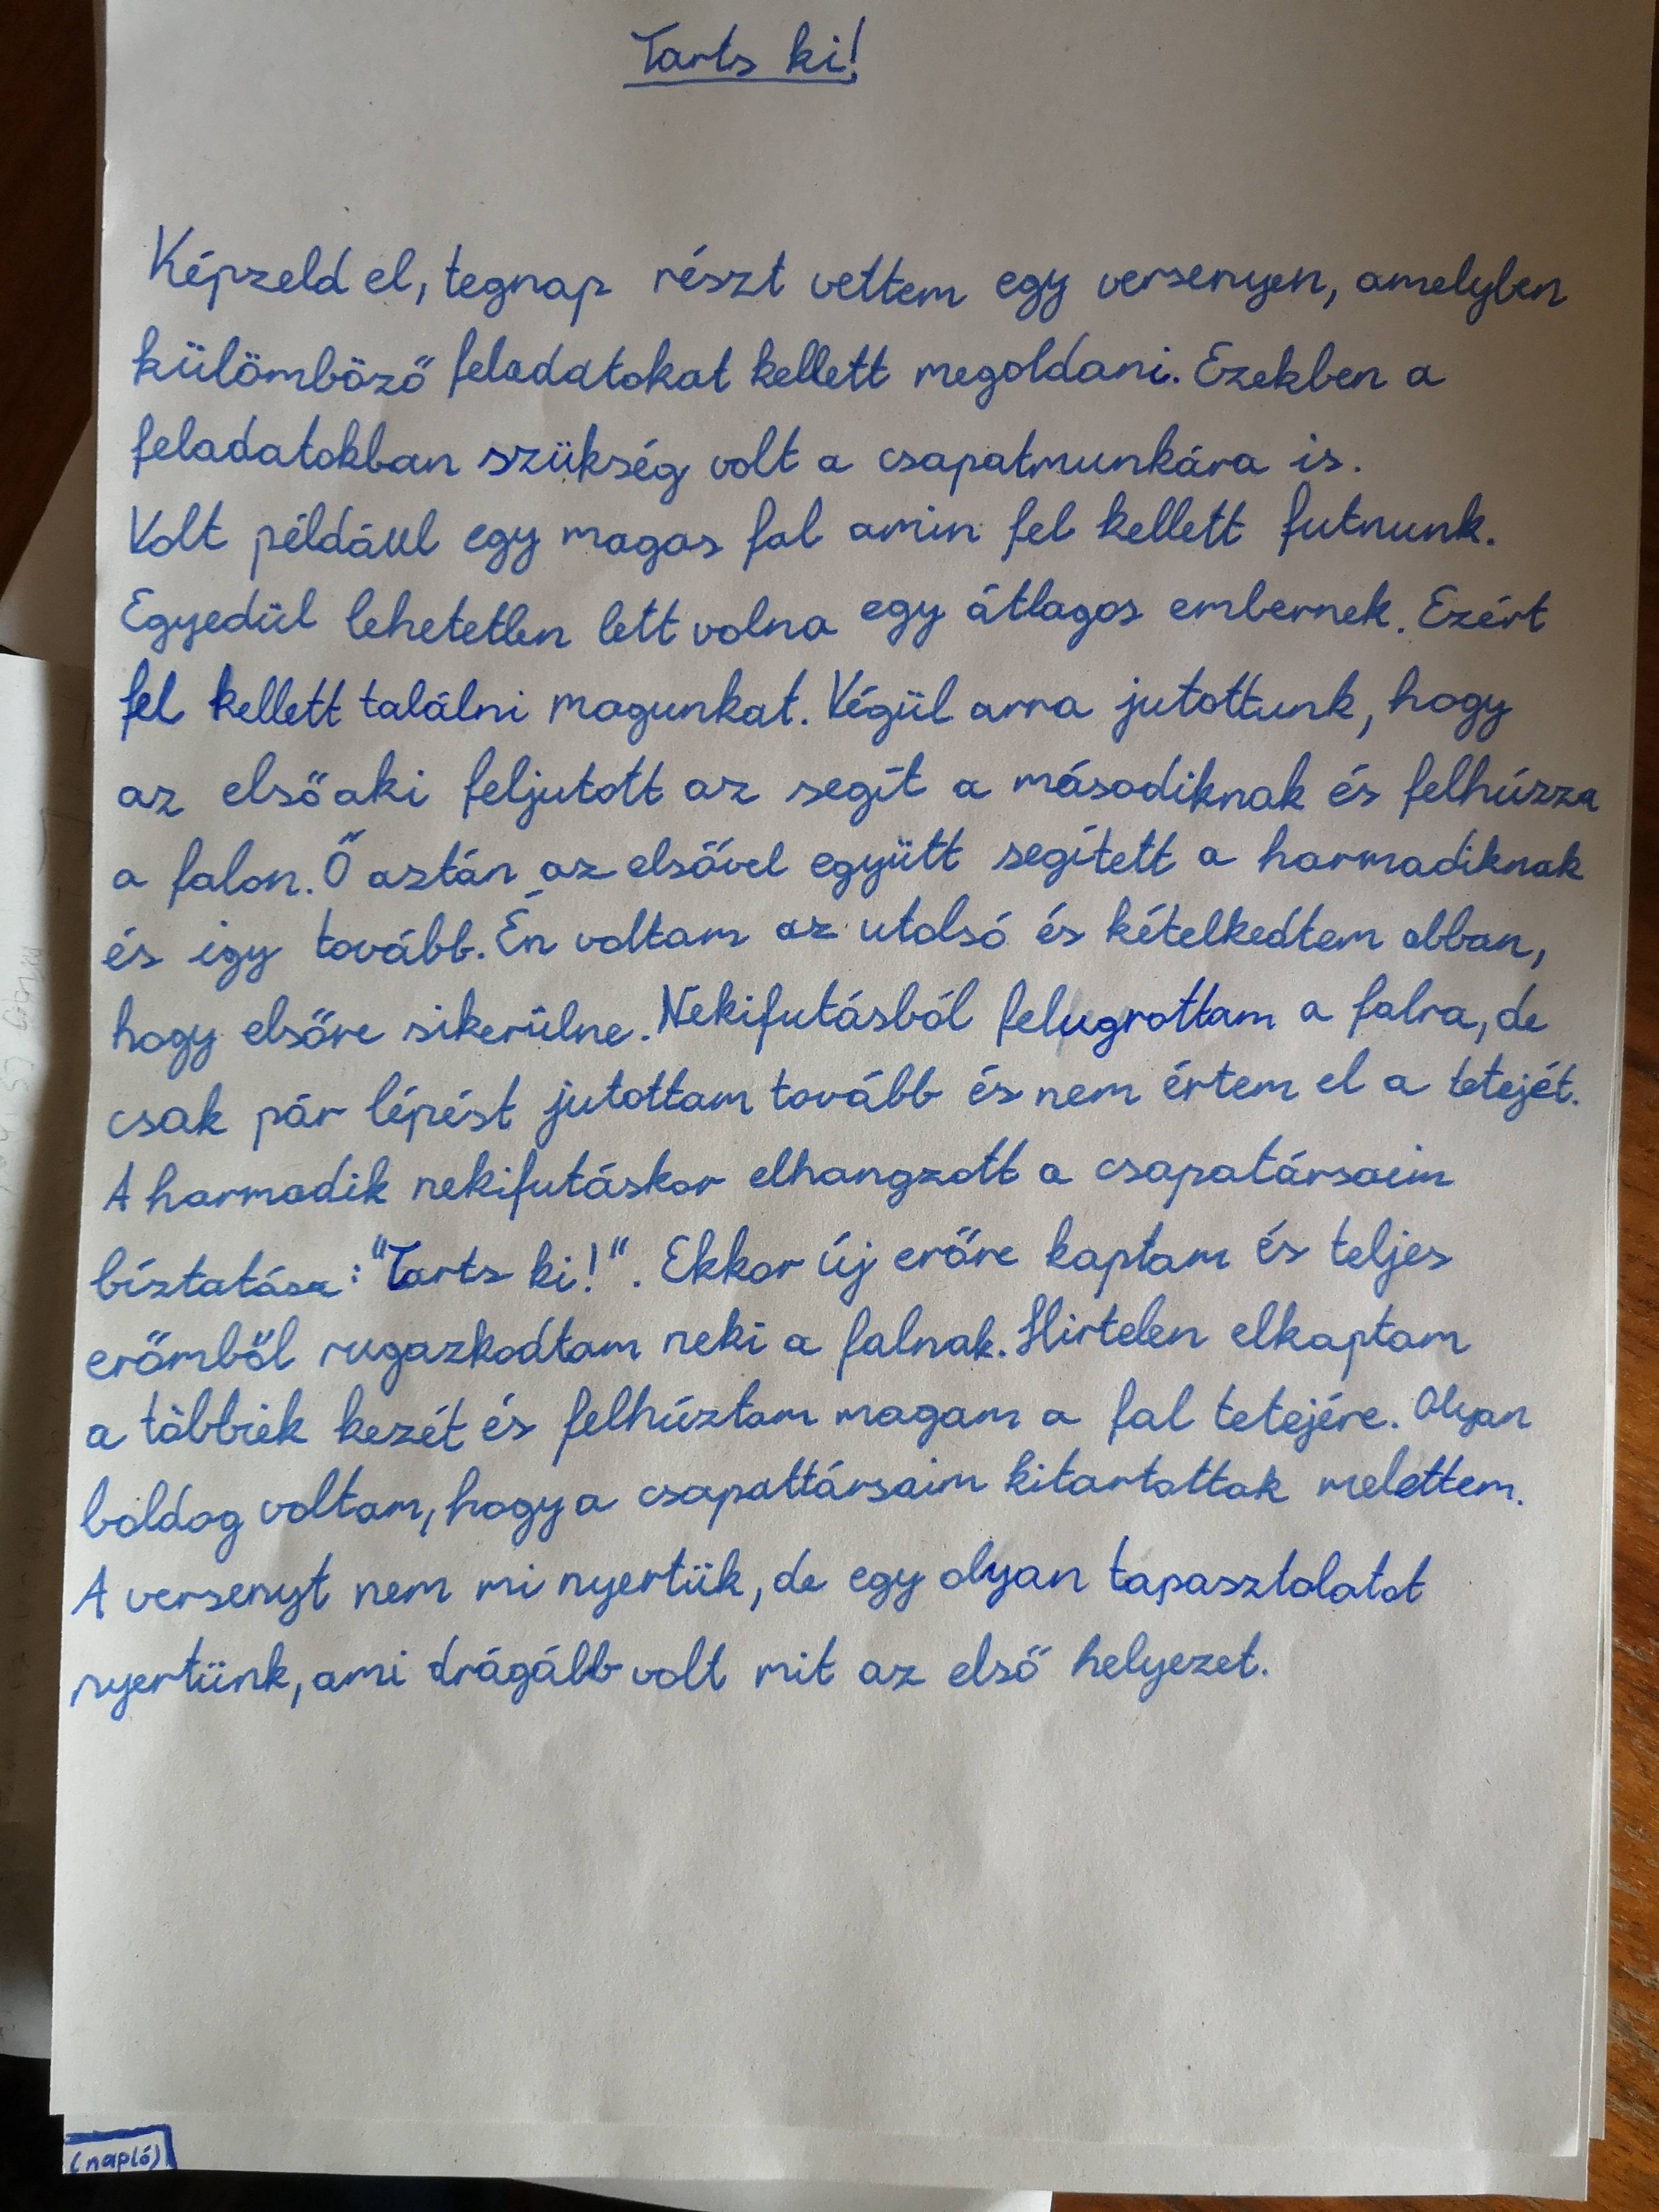 Tarts ki!
Képzeld el, tegnap részt vettem egy versenyen, amelyben
külömböző feladatokat kellett megoldani. Ezekben a
feladatokban szükség volt a csapatmunkára is.
Volt például egy magas fal amin fel kellett futnunk.
Egyedül lehetetlen lett volna egy átlagos embernek. Ezért
fel kellett találni magunkat. Végül arra jutottunk, hogy
az első aki feljutott az segít a másodiknak és felhúzza
a falon. Ő aztán az elsővel együtt segített a harmadiknak
és igy tovább. Én voltam az utolsó és kételkedtem abban,
hogy elsőre sikerülne. Nekifutásból felugrottam a falra, de
csak pár lépést jutottam tovább és nem értem el a tetejét.
A harmadik nekifutáskor elhangzott a csapatársaim
bíztatása: "Tarts ki!". Ekkor új erőre kaptam és teljes
erőmből rugazkodtam neki a falnak. Hirtelen elkaptam
a többiek kezét és felhúztam magam a fal tetejére. Olyan
boldog voltam, hogy a csapattársaim kitartottak melettem.
A versenyt nem mi nyertük, de egy olyan tapasztalatot
nyertünk, ami drágább volt mit az első helyezet.
(napló)